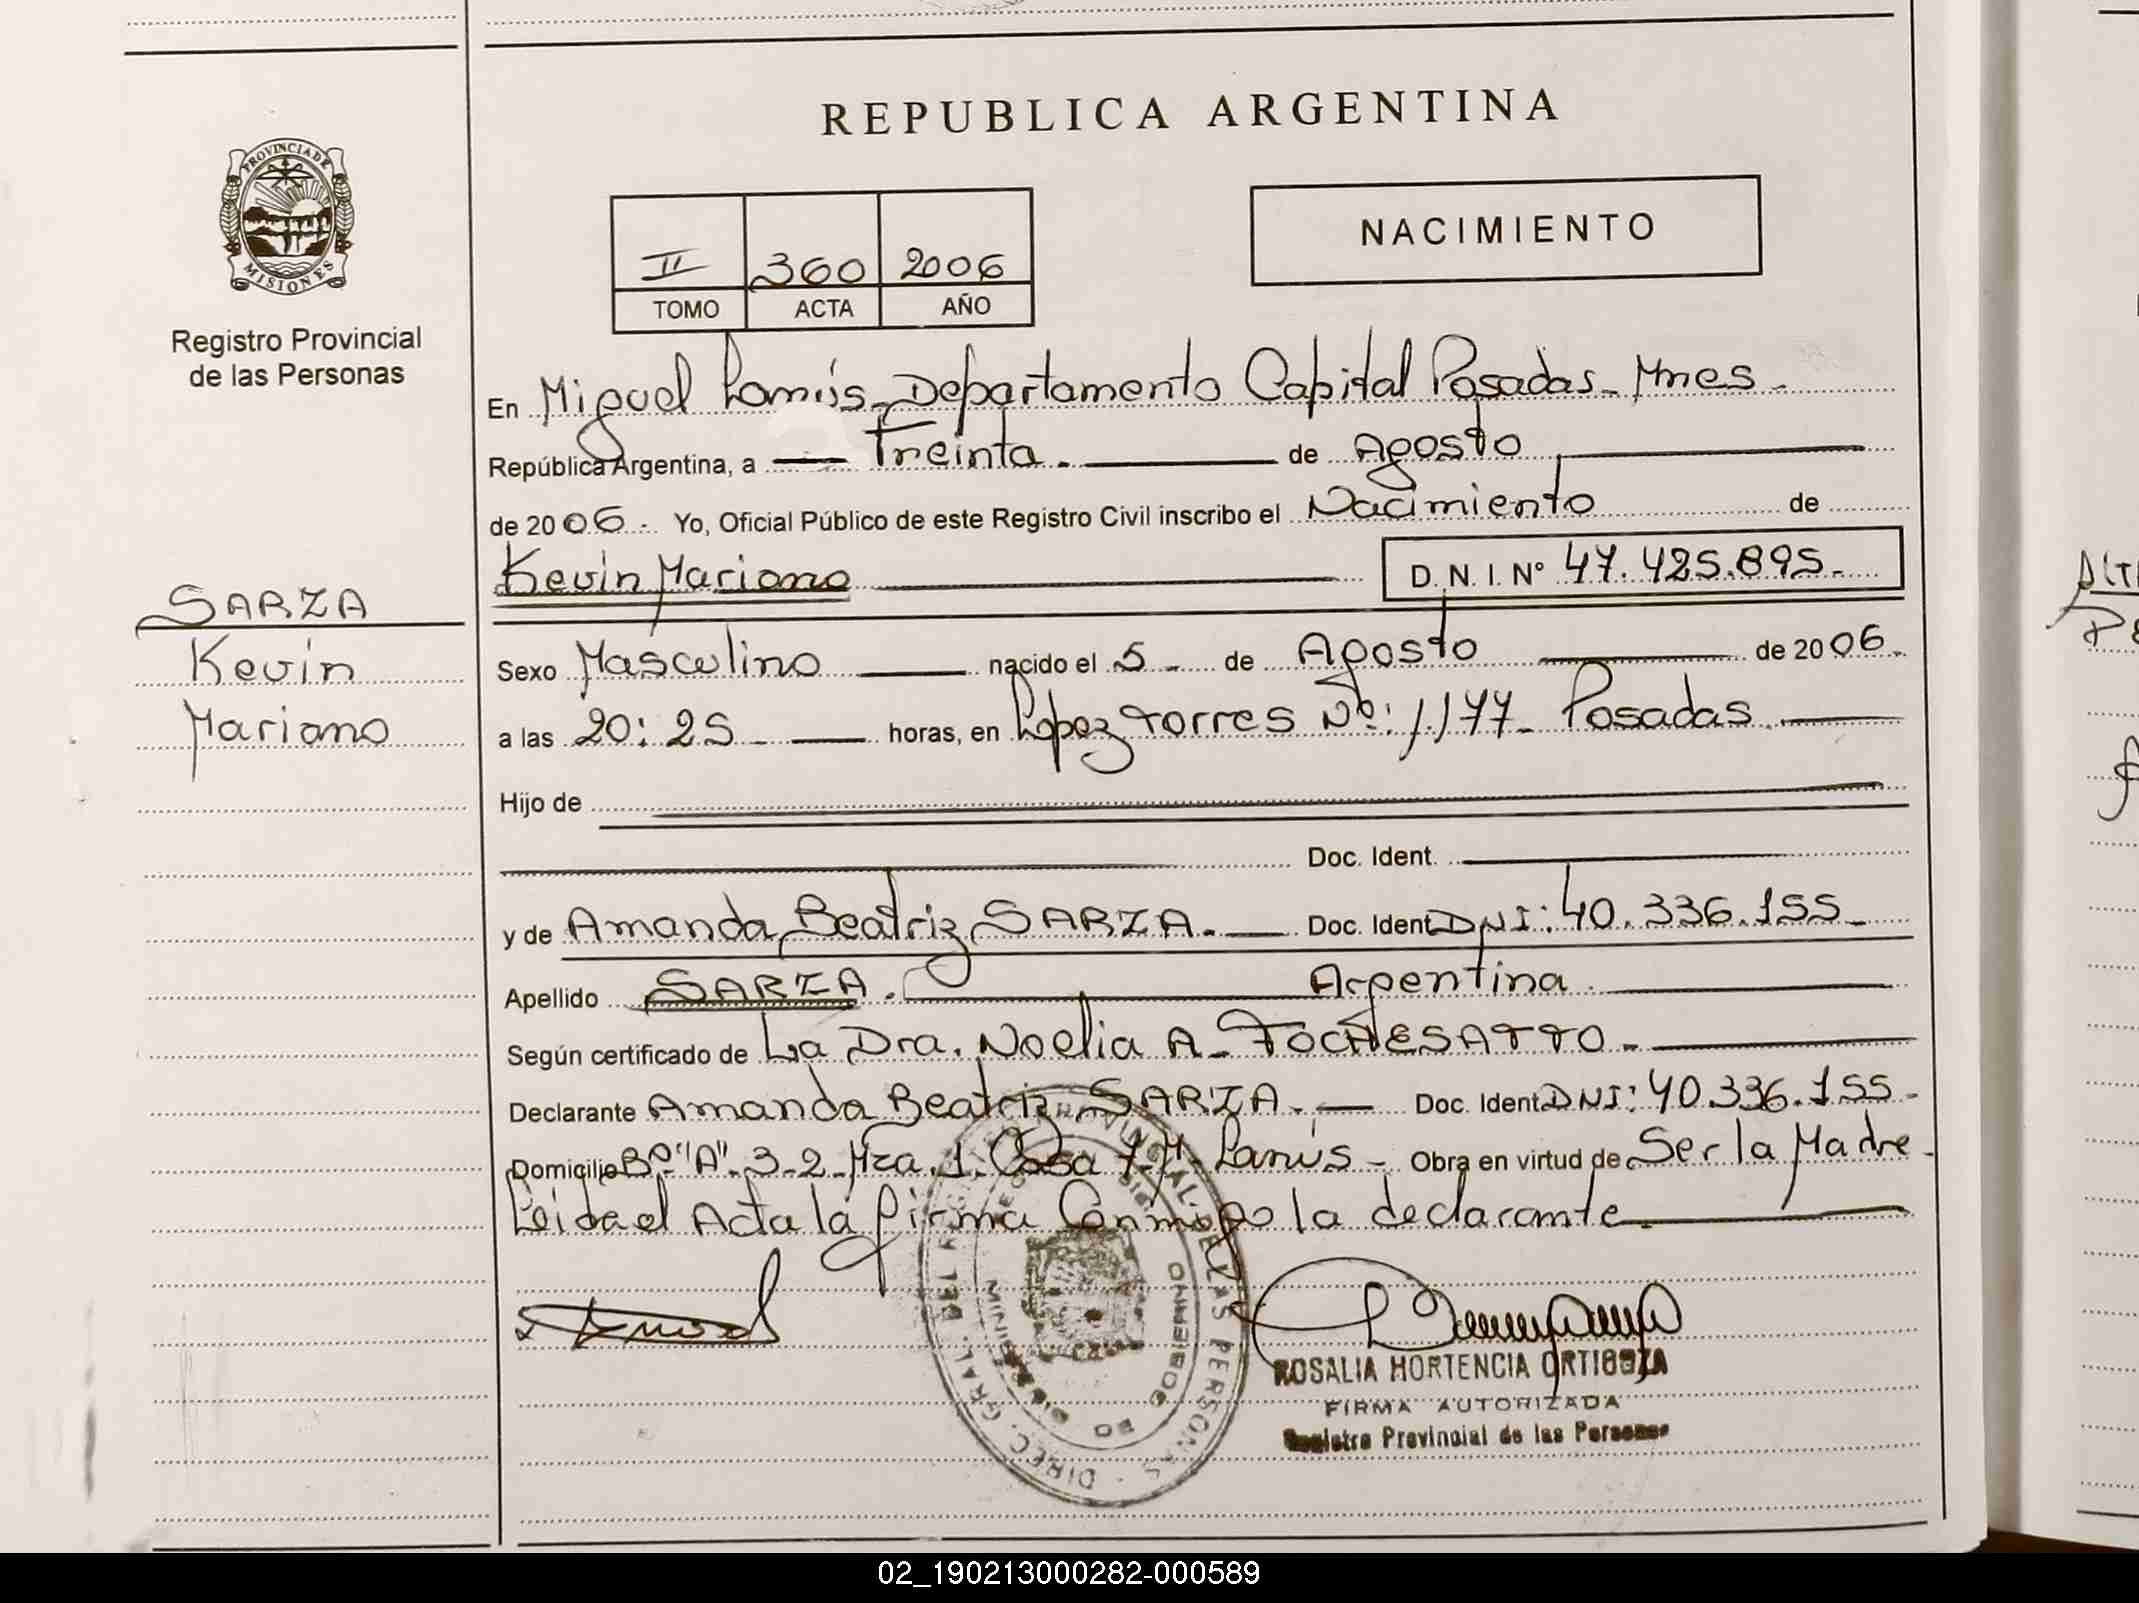 REPUBLICA ARGENTINA
PROVINCIA DE
MISIONES
Registro Provincial
de las Personas
II 360 2006
TOMO ACTA AÑO
NACIMIENTO
En Miguel Lanús - Departamento Capital Posadas - Mnes -
República Argentina, a Treinta. de Agosto
de 2006 - Yo, Oficial Público de este Registro Civil inscribo el Nacimiento de
Kevin Mariano D. N. I. Nº 47.425.895.-
SARZA
Kevin
Mariano
Sexo Masculino nacido el 5 - de Agosto de 2006.
a las 20:25 horas, en Lopez Torres Nº: 1.177 - Posadas
Hijo de
Doc. Ident.
y de Amanda Beatriz SARZA. Doc. Ident DNI: 40.336.155 -
Apellido SARZA. Argentina
Según certificado de La Dra. Noelia A. TOCHESATTO -
Declarante Amanda Beatriz SARZA. Doc. Ident DNI: 40.336.155 -
Domicilio Bº "A" 3-2 Mza. 1 Casa 7 M. Lanús - Obra en virtud de Ser la Madre -
Leida el Acta la firma Conmigo la declarante.
ROSALIA HORTENCIA ORTIGOZA
FIRMA AUTORIZADA
Registro Provincial de las Personas
02_190213000282-000589